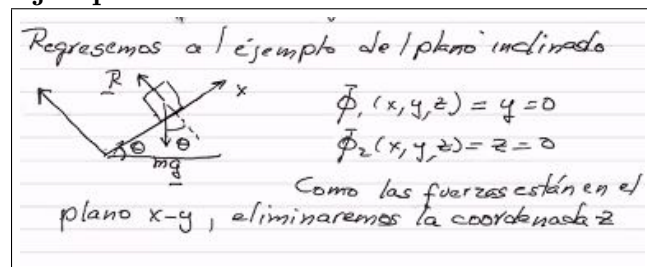 Regresemos al ejemplo del plano inclinado
R x
Φ₁(x,y,z) = y = 0
θ θ
Φ₂(x,y,z) = z = 0
mg
Como las fuerzas están en el
plano x-y, eliminaremos la coordenada z